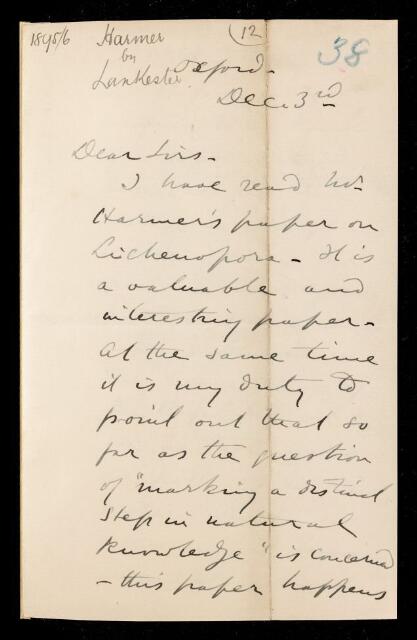 1895/6 Harmer 12 38
by
Lankester
Oxford.
Dec. 3rd
Dear Sirs -
I have read Mr
Harmer's paper on
Lichenopora - It is
a valuable and
interesting paper -
At the same time
it is my duty to
point out that so
far as the question
of "marking a distinct
step in natural
knowledge" is concerned
- this paper happens